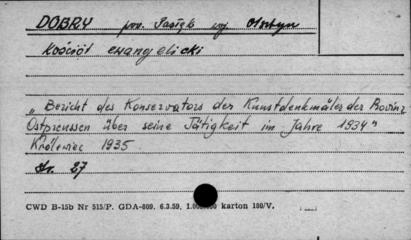 DOBRY pow. Pasłęk woj. Olsztyn
Kościół ewangelicki
„Bericht des Konservators der Kunstdenkmäler der Provinz
Ostpreussen über seine Tätigkeit im Jahre 1934"
Królewiec 1935
str. 27
CWD B-15b Nr 515/P. GDA-809. 6.3.59. karton 180/V.